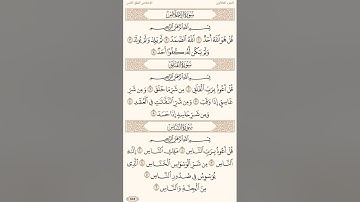 سُورَةُ الإِخْلَاصِ
بِسْمِ اللَّهِ الرَّحْمَٰنِ الرَّحِيمِ
قُلْ هُوَ اللَّهُ أَحَدٌ ۝١ اللَّهُ الصَّمَدُ ۝٢ لَمْ يَلِدْ وَلَمْ يُولَدْ ۝٣
وَلَمْ يَكُن لَّهُ كُفُوًا أَحَدٌ ۝٤
سُورَةُ الْفَلَقِ
بِسْمِ اللَّهِ الرَّحْمَٰنِ الرَّحِيمِ
قُلْ أَعُوذُ بِرَبِّ الْفَلَقِ ۝١ مِن شَرِّ مَا خَلَقَ ۝٢ وَمِن شَرِّ
غَاسِقٍ إِذَا وَقَبَ ۝٣ وَمِن شَرِّ النَّفَّاثَاتِ فِي الْعُقَدِ ۝٤
وَمِن شَرِّ حَاسِدٍ إِذَا حَسَدَ ۝٥
سُورَةُ النَّاسِ
بِسْمِ اللَّهِ الرَّحْمَٰنِ الرَّحِيمِ
قُلْ أَعُوذُ بِرَبِّ النَّاسِ ۝١ مَلِكِ النَّاسِ ۝٢ إِلَٰهِ
النَّاسِ ۝٣ مِن شَرِّ الْوَسْوَاسِ الْخَنَّاسِ ۝٤ الَّذِي
يُوَسْوِسُ فِي صُدُورِ النَّاسِ ۝٥
مِنَ الْجِنَّةِ وَالنَّاسِ ۝٦